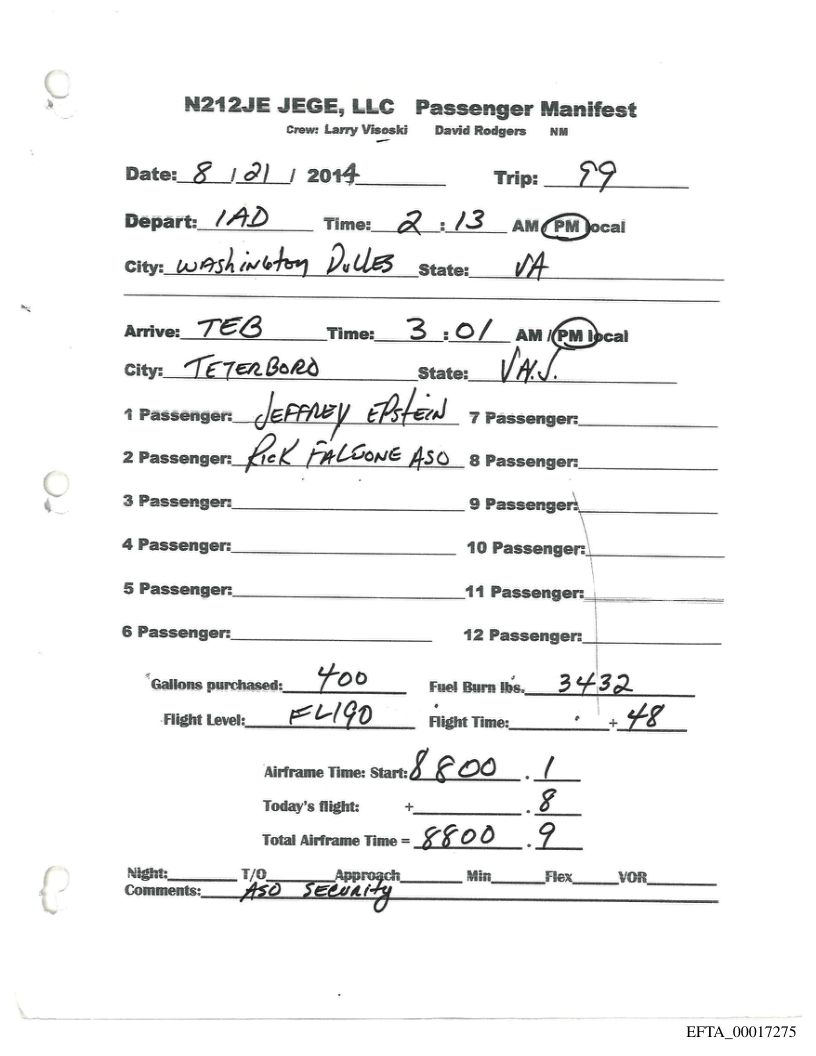 N212JE JEGE, LLC Passenger Manifest
Crew: Larry Visoski David Rodgers NM
Date: 8 / 21 / 2014 Trip: 99
Depart: IAD Time: 2 : 13 AM PM local
City: WAShiNGtoN DULLES State: VA
Arrive: TEB Time: 3 : 01 AM / PM local
City: TETERBORO State: N.J.
1 Passenger: JEFFREY EPStEiN 7 Passenger:
2 Passenger: RicK FALCONE ASO 8 Passenger:
3 Passenger: 9 Passenger:
4 Passenger: 10 Passenger:
5 Passenger: 11 Passenger:
6 Passenger: 12 Passenger:
Gallons purchased: 400 Fuel Burn lbs. 3432
Flight Level: FL190 Flight Time: + 48
Airframe Time: Start: 8800 . 1
Today's flight: + . 8
Total Airframe Time = 8800 . 9
Night: T/O Approach Min Flex VOR
Comments: ASO SECURity
EFTA_00017275